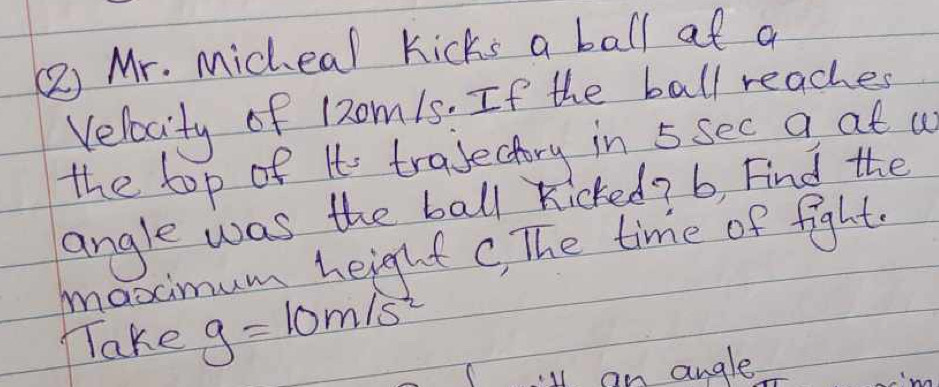 (2) Mr. Micheal Kicks a ball at a
Velocity of 120m/s. If the ball reaches
the top of Its trajectory in 5 sec a, at
angle was the ball kicked? b, Find the
maximum height c, The time of fight.
Take g = 10m/s²
an angle